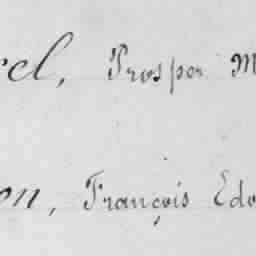 rel, Prosper M
on, François Edo